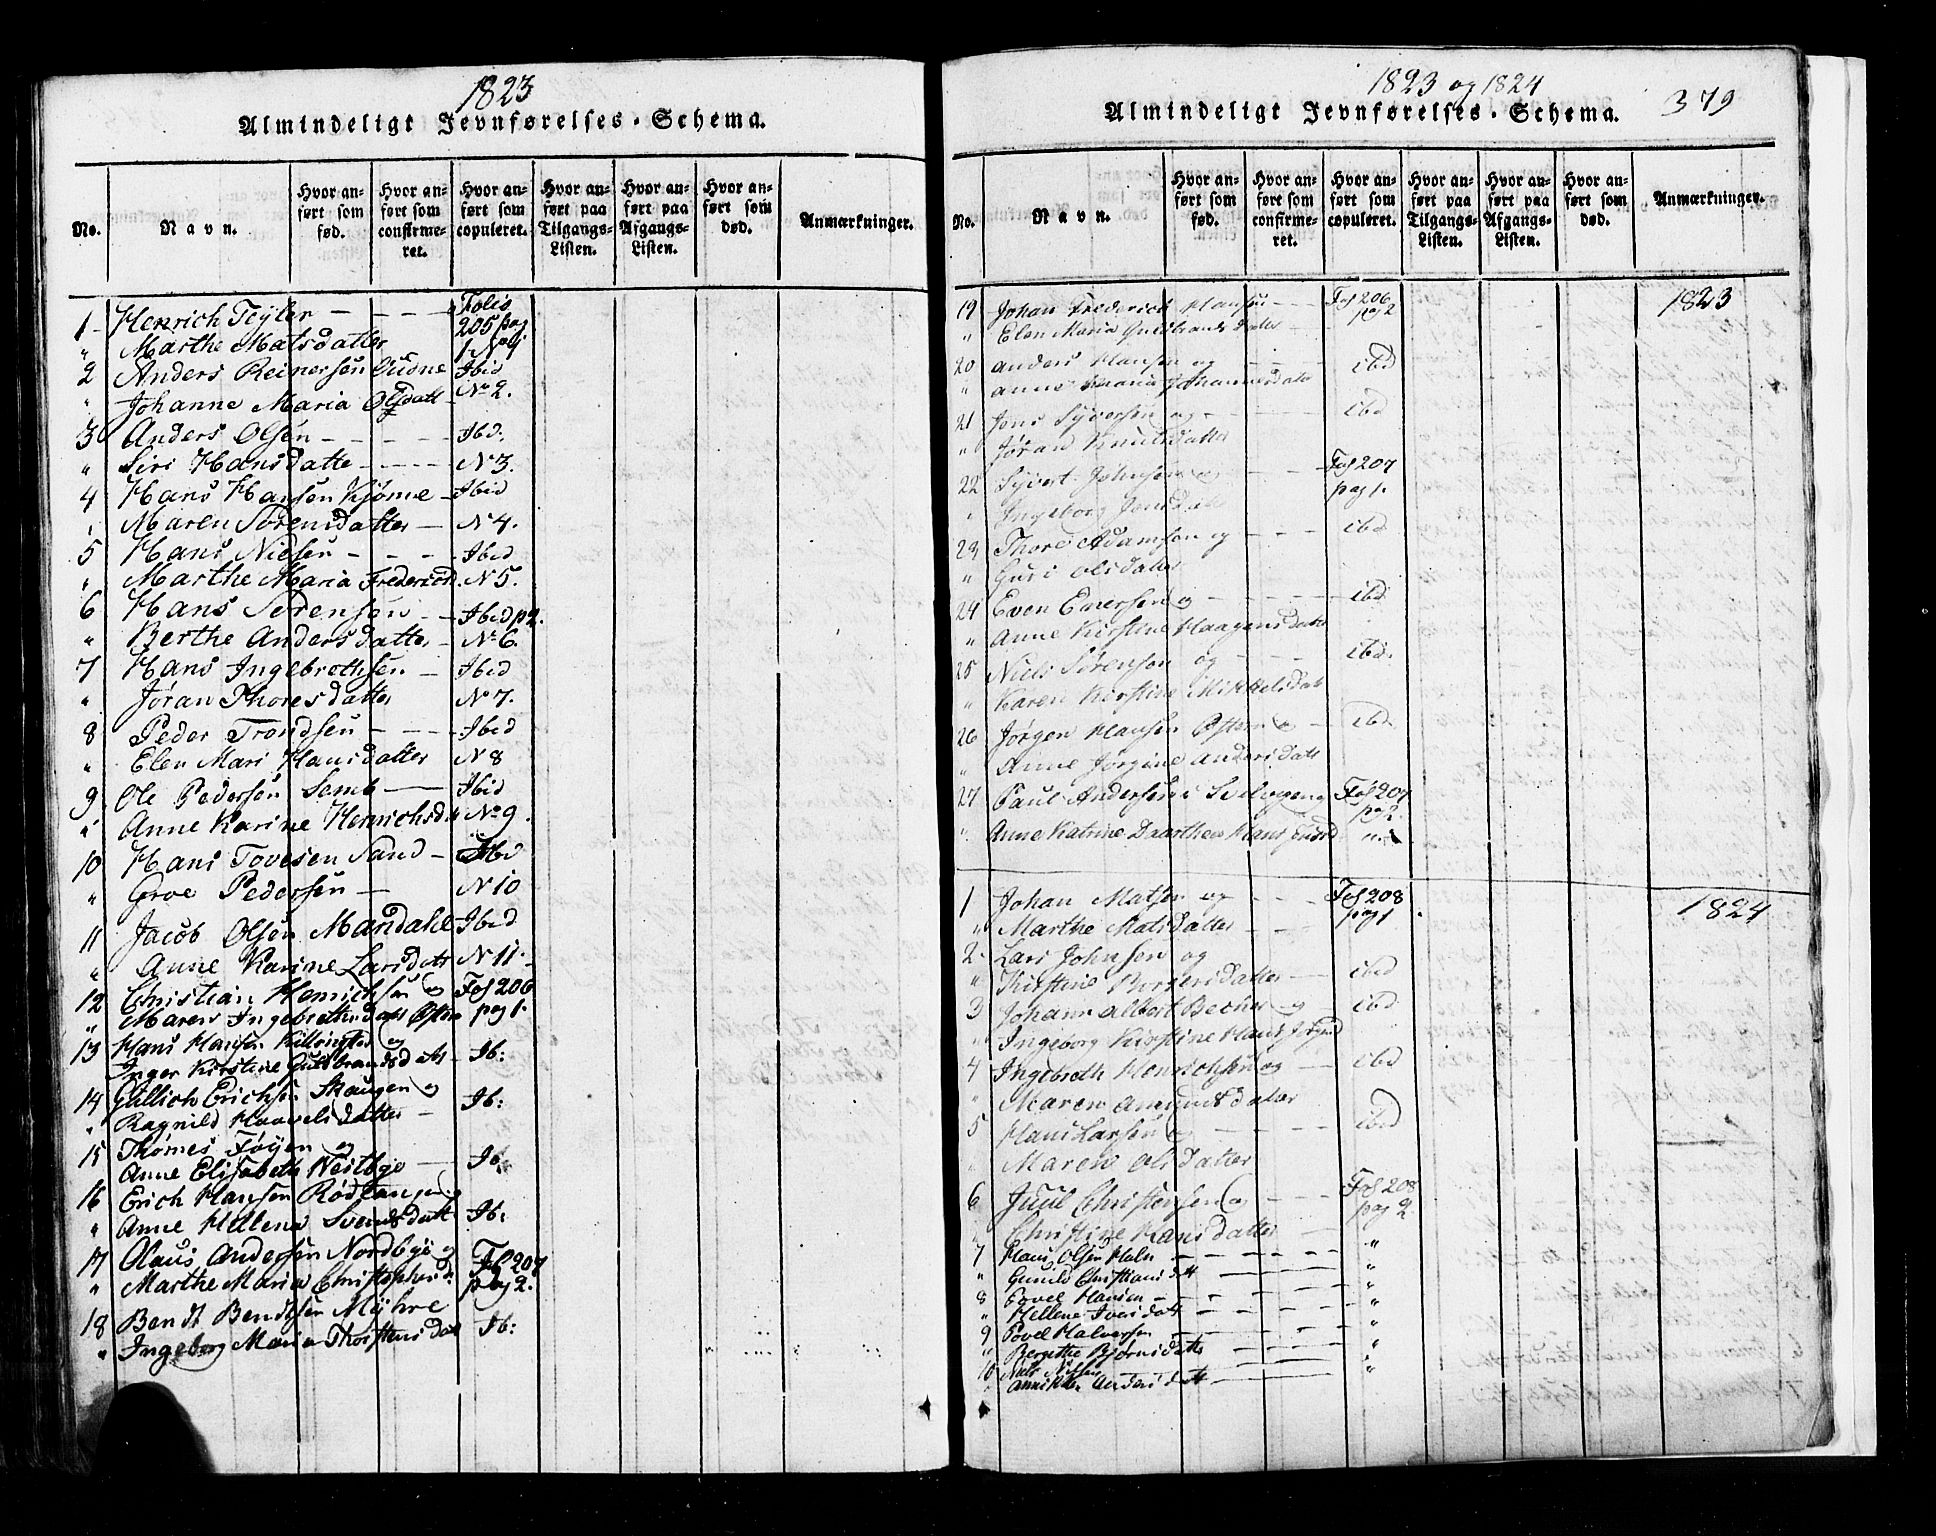 1823
Almindeligt Jevnførelses-Schema.
No. Navn. Hvor anført som fød. Hvor anført som confirmeret. Hvor anført som copuleret. Hvor anført paa Tilgangs-Listen. Hvor anført paa Afgangs-Listen. Hvor anført som død. Anmærkninger.
1 Henrich Teÿler - - - - Folio 205 pag
" Marthe Matsdatter 1 No 1
2 Anders Reinersen Gudne Ibid
" Johanne Maria Olsdatt No 2.
3 Anders Olsen - - - - Ibd:
" Siri Hansdatte - - - - N 3.
4 Hans Hansen Kjønne - Ibid
" Maren Sørensdatter - N 4.
5 Hans Nielsen - - - - Ibid
" Marthe Maria Fredericsd. N 5.
6 Hans Sørensen - - Ibid p 2.
" Berthe Andersdatter - No 6.
7 Hans Ingebrethsen - Ibid
" Jøran Thoresdatter N 7.
8 Peder Trondsen - - - - Ibid
" Elen Mari Hansdatter N 8
9 Ole Pedersen Semb - Ibid
" Anne Karine Henrichsd No 9
10 Hans Tovesen Sand - Ibid
" Groe Pedersen - N 10
11 Jacob Olsen Mandahl Ibid
" Anne Karine Larsdatt N 11.
12 Christian Henrichsen og Fol 206
" Maren Ingebrethsdatt Østen pag 1.
13 Hans Hansen Killingstad og
Inger Kirstine Guldbrandsd att - Ib:
14 Gullich Erichsen Skaugen og
" Ragnild Haavelsdatter - Ib:
15 Thomes Føyen og
Anne Elisabeth Nestbye - Ib.
16 Erich Hansen Rødtangen og
" Anne Hellene Svendsdatt Ib:
17 Olaus Andersen Nordbye og Fol 207
" Marthe Maria Christophersd. pag 2.
18 Bendt Bendtsen Mÿhre
" Ingeborg Maria Thorstensdat Ib:
1823 og 1824
Almindeligt Jevnførelses-Schema. 379
No. Navn. Hvor anført som fød. Hvor anført som confirmeret. Hvor anført som copuleret. Hvor anført paa Tilgangs-Listen. Hvor anført paa Afgangs-Listen. Hvor anført som død. Anmærkninger.
19 Johan Frederich Hansen - - Fol 206 pag 2 1823
" Elen Maria Guldbrandsdatter - -
20 Anders Hansen og - - - - ibd
" Anne Maria Johannesdatr
21 Jens Syversen og - - - - ibd
" Jøran Knutsdatter
22 Syvert Johnsen og - - - - Fol 207 pag 1.
" Ingeborg Jonsdatt
23 Thore Adamsen og - - - ibd
" Guri Olsdatter
24 Even Enersen og - - - - ibd
" Anne Kirstine Haagensdatter
25 Niels Sørensen og - - - ibd.
" Karen Kirstine Mikkelsdat
26 Jørgen Hansen Østern og - ibd.
" Anne Jørgine Andersdatt
27 Paul Andersen Selvigen og Fol 207 pag 2.
" Anne Katrine Dorthea Hans Tudsd
1 Johan Matsen og - - - Fol 208 pag 1 1824
" Marthe Matsdatter - - -
2. Lars Johnsen og
" Kirstine Borgersdatter - ibid
3 Johann Albert Becher og - ibd
" Ingeborg Kirstine Hansd
4 Ingebreth Henrichsen og - ibd
" Maren Amundsdatter
5 Hans Larsen og - - - - ibid
" Maren Olsdatter
6 Juul Christensen og - - - Fol 208 pag 2.
" Christine Hansdatter -
7 Hans Olsen Holm - - - - - "
" Gunild Christiansdatt - - - "
8 Povel Hansen - - - - - "
" Hellene Iversdatt - - - "
9 Povel Halvorsen - - - - - "
" Bergithe Bjørnsdatter - - - "
10 Niels Nilsen - - - - "
" Andersdatt